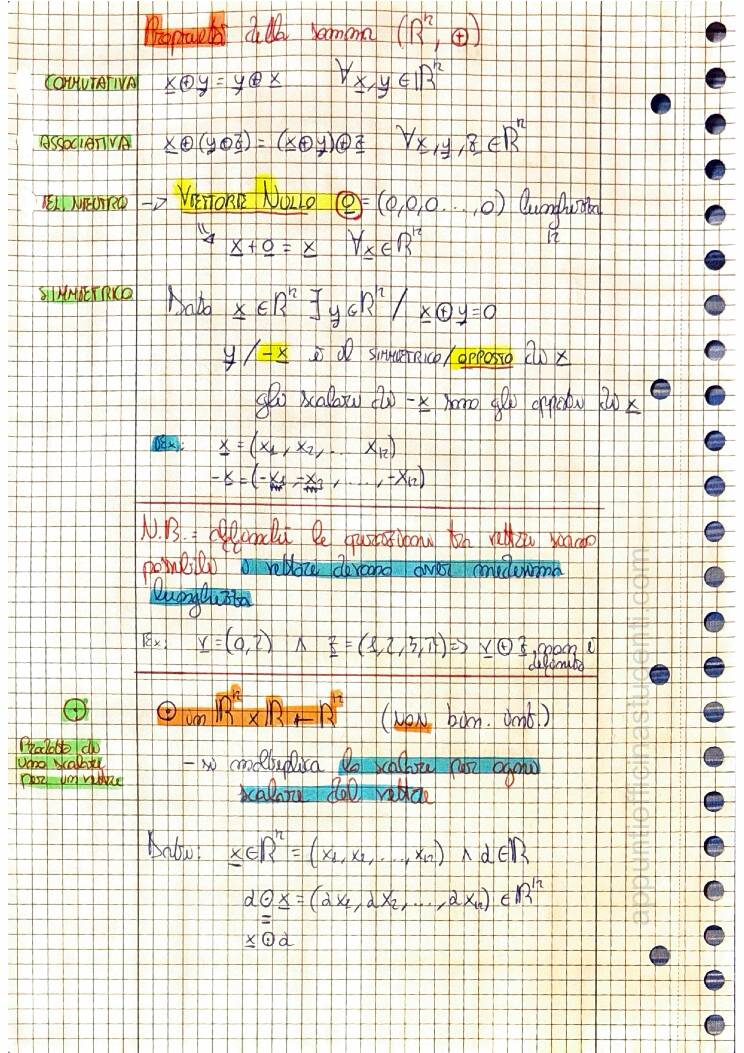 Proprietà della somma (ℝⁿ, ⊕)
COMMUTATIVA x⊕y = y⊕x ∀x,y ∈ ℝⁿ
ASSOCIATIVA x⊕(y⊕z) = (x⊕y)⊕z ∀x,y,z ∈ ℝⁿ
EL. NEUTRO → VETTORE NULLO 0 = (0,0,0...,0) lunghezza
n
x+0 = x ∀x ∈ ℝⁿ
SIMMETRICO Dato x ∈ ℝⁿ ∃ y ∈ ℝⁿ / x⊕y=0
y / -x è il SIMMETRICO/OPPOSTO di x
gli scalari di -x sono gli opposti di x
Ex: x = (x₁, x₂, ... xₙ)
-x = (-x₁, -x₂, ..., -xₙ)
N.B.: affinché le operazioni tra vettori siano
possibili i vettori devono aver medesima
lunghezza
Ex: v = (0,2) ∧ z = (1,2,3,π) => v⊕z non è
definito
⊙ ⊙ in ℝⁿ × ℝ ← ℝⁿ (NON bin. int.)
Prodotto di
uno scalare
per un vettore
- si moltiplica lo scalare per ogni
scalare del vettore
Dati: x∈ℝⁿ = (x₁, x₂, ..., xₙ) ∧ α∈ℝ
α⊙x = (αx₁, αx₂, ..., αxₙ) ∈ ℝⁿ
=
x⊙α
appuntiofficinastudenti.com